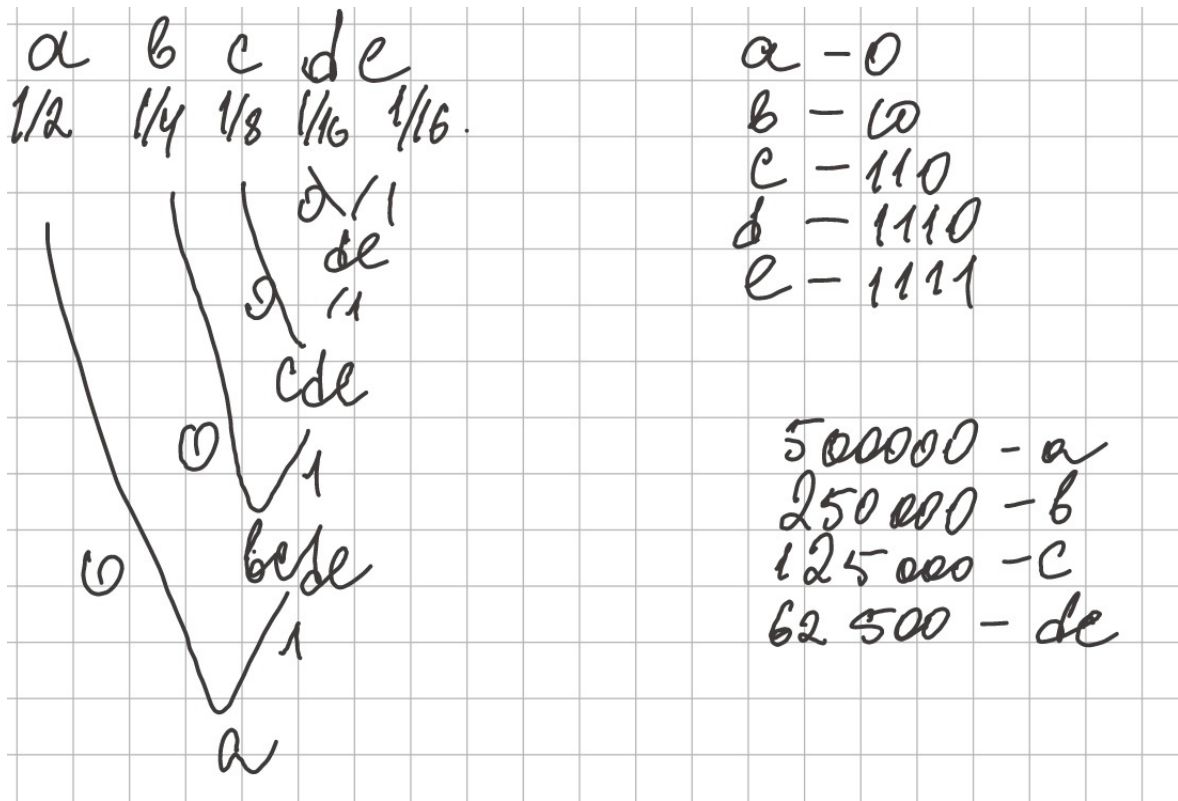 a b c d e
1/2 1/4 1/8 1/16 1/16.
0 1
de
0 1
cde
0 1
bcde
0 1
a
a - 0
b - 10
c - 110
d - 1110
e - 1111
500000 - a
250 000 - b
125 000 - c
62 500 - de